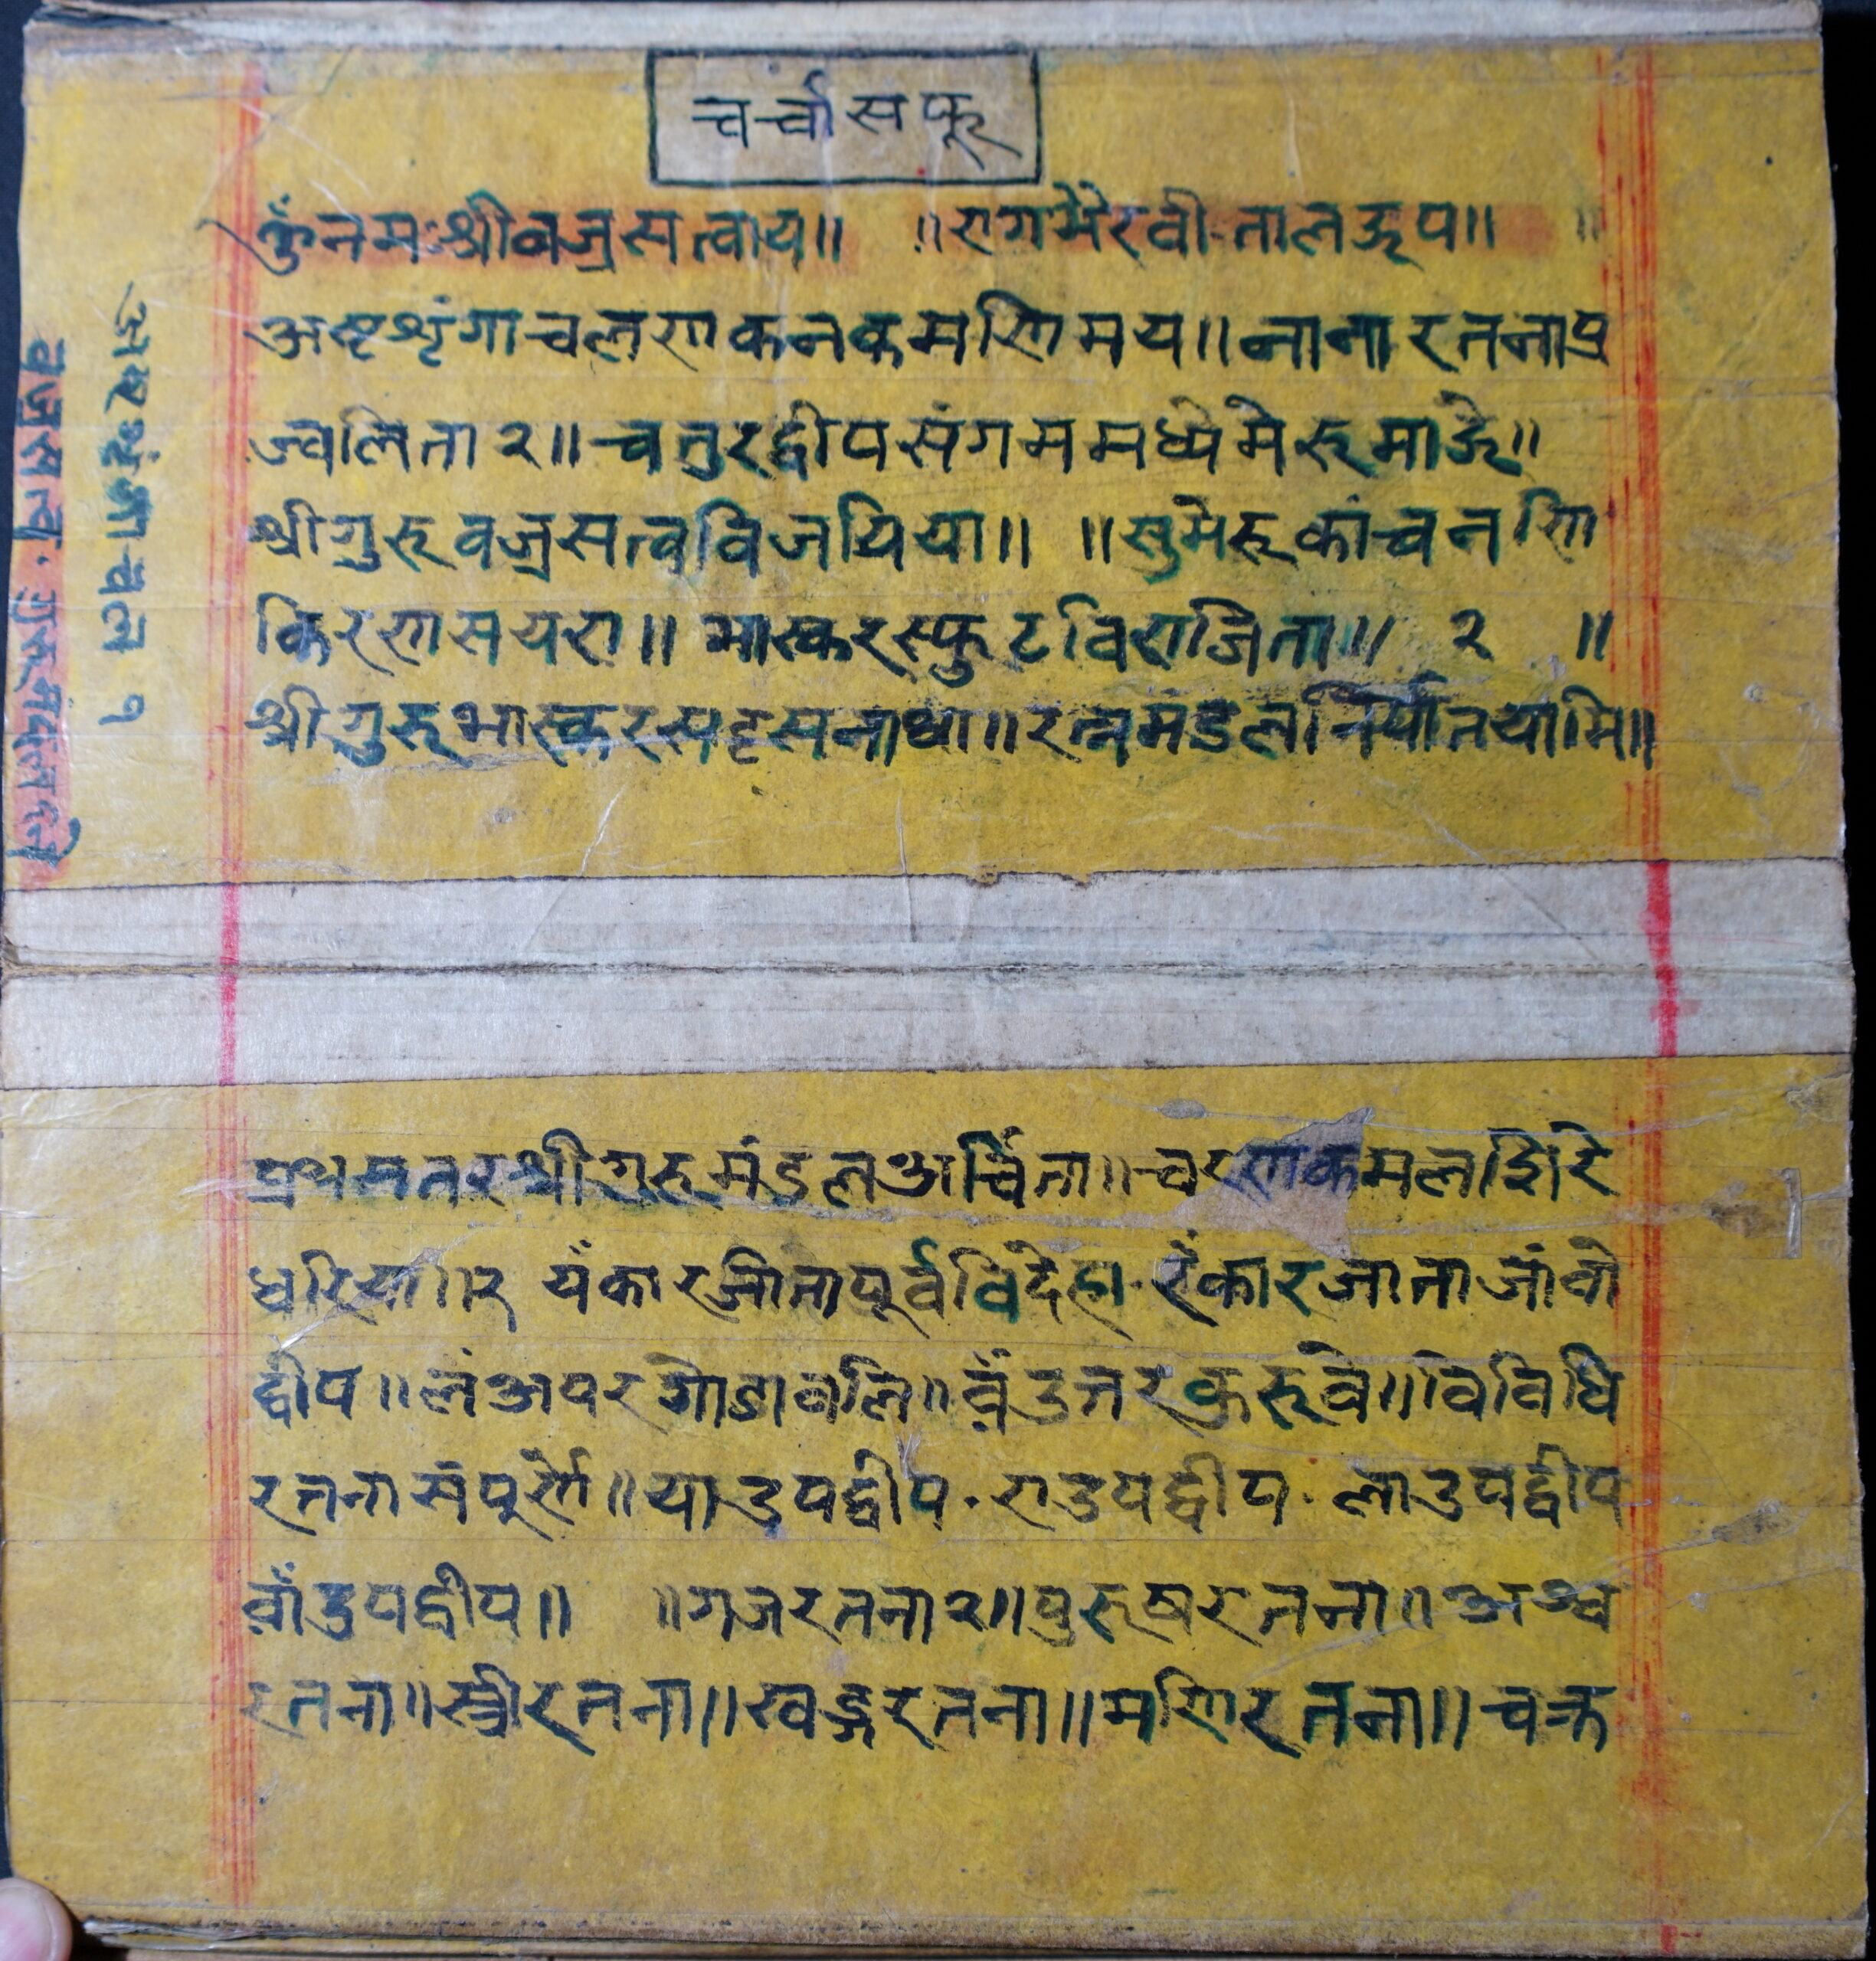 चर्चा सफू
ॐ नमः श्रीवज्रसत्वाय॥ ॥रागभैरवी-तालझप॥ ॥
अष्टशृंगाचलणकनकमणिमय॥नानारतनाप्र
ज्वलिता२॥चतुरद्वीपसंगममध्येमेरूमाझे॥
श्रीगुरूवज्रसत्वविजयिया॥ ॥सुमेरूकांचनणि
किरणसयरा॥भास्करस्फुटविराजिता॥ २ ॥
श्रीगुरूभास्करसदृसनाथा॥रत्नमंडलनिर्यातयामि॥
प्रथमतरश्रीगुरुमंडलअर्चिता॥चरणकमलशिरे
धरिया॥२ यँकारजाितापूर्वविदेहा-रँकारजाताजांवो
द्वीप॥लंअपरगोडावलि॥वँउत्तरकुरूवे॥विविधि
रतनासंपूर्ण॥याउपद्वीप.राउपद्वीप.लाउपद्वीप
वाँउपद्वीप॥ ॥गजरतना२॥पुरूषरतना॥अश्व
रतना॥स्त्रीरतना॥खड्गरतना॥मणिरतना॥चक्र
अष्टशृंगाचल १
वज्रसत्व